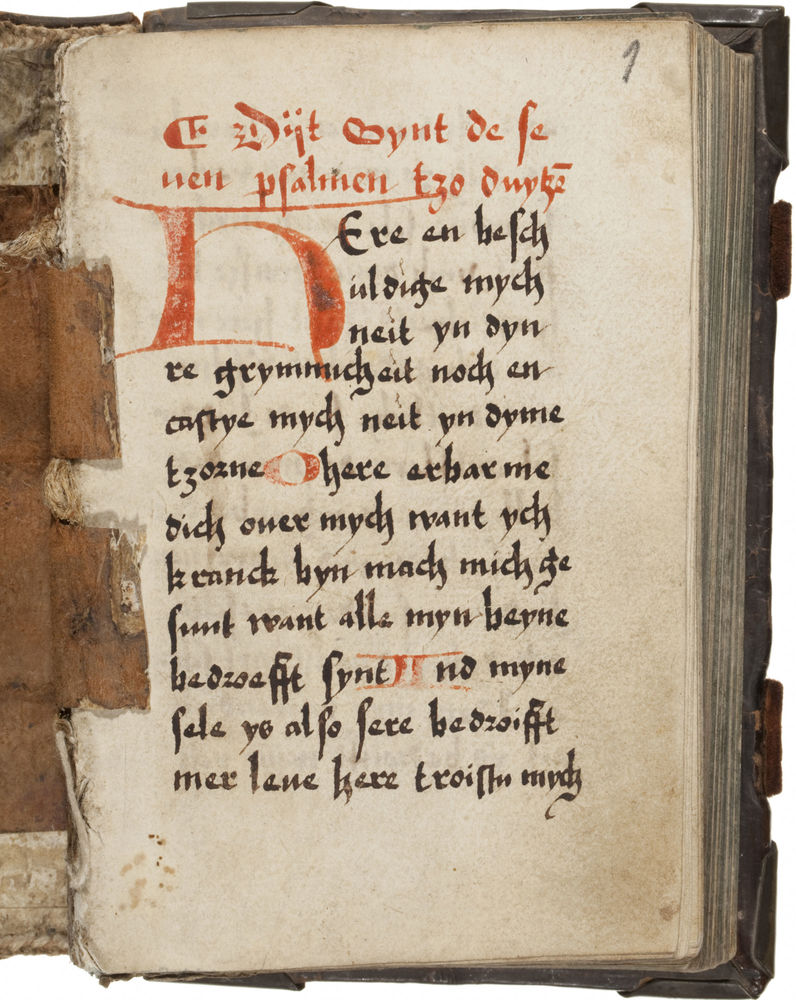 1
¶ Dijt Synt de se
uen psalmen tzo duytzē
HEre en besch
uldige mych
neit yn dyn
re grymmicheit noch en
castye mych neit yn dyme
tzorne O here erbarme
dich ouer mych want ych
kranck byn mach mich ge
sunt want alle myn beyne
bedroefft synt Und myne
sele ys also sere bedroifft
mer leue here troistu mych